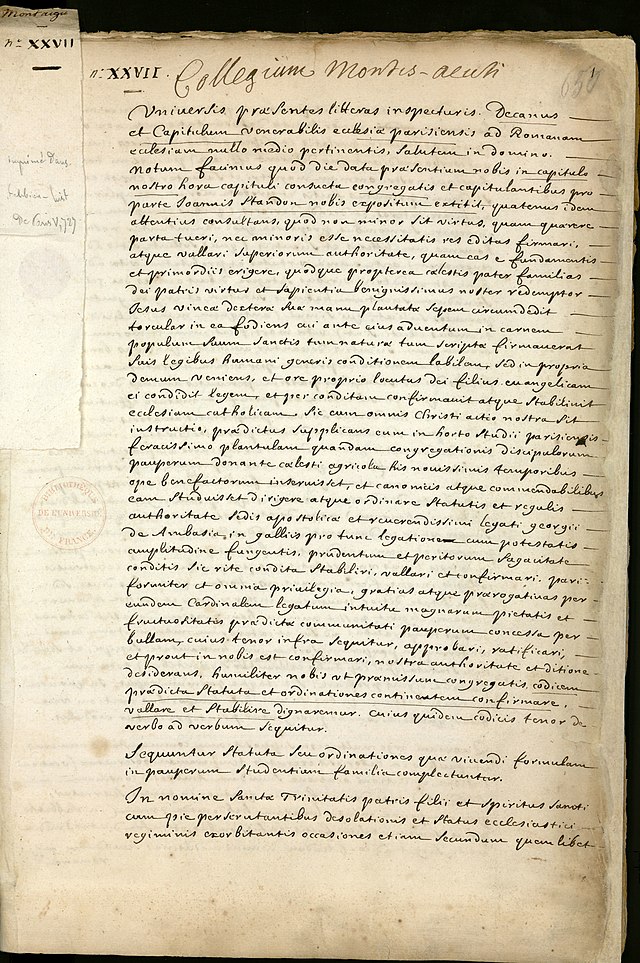 Montaigu
nº XXVII
imprimé dans
nº XXVII. Collegium Montis-acuti
Universis præsentes litteras inspecturis. Decanus
et Capitulum venerabilis ecclesiæ parisiensis ad Romanam
ecclesiam nullo medio pertinentis, salutem in domino.
Notum facimus quod die data præsentium nobis in capitulo
nostro hora capituli consueta congregatis et capitulantibus pro
parte Joannis Standon nobis expositum extitit, quatenus idem
attentius consultans, quod non minor sit virtus, quam quærere
parta tueri, nec minoris esse necessitatis res editas firmari,
atque vallari superiorum authoritate, quam eas e fundamentis
et primordiis erigere, quodque propterea cælestis pater familias
dei patris virtus et sapientia benignissimus noster redemptor
Jesus vineã dextera sua manu plantatã sepem circumdedit
torcular in ea fodiens cui ante eius adventum in carnem
populum suum sanctis tum natura tum scripta firmaverat
suis legibus humani generis conditionem labilem, sed in propria
demum veniens, et ore proprio locutus dei filius evangelicam
ei condidit legem, et per conditam confirmavit atque stabilivit
ecclesiam catholicam, sic cum omnis Christi actio nostra sit
instructio, prædictus supplicans cum in horto studii parisiensis
feracissimo plantulam quandam congregationis discipulorum
pauperum donante cælesti agricola his novissimis temporibus
ope benefactorum inseruisset, et canonicis atque commendabilibus
eam studuisset dirigere atque ordinare statutis et regulis
authoritate sedis apostolicæ et reverendissimi legati georgii
de Ambasia, in galliis pro tunc legatione cum potestatis
amplitudine fungentis, prudentum et peritorum sagacitate
conditis sic rite condita stabiliri, vallari et confirmari, pari-
formiter et omnia privilegia, gratias atque prærogativas per
eundem Cardinalem legatum intuitu magnarum pietatis et
fructuositatis prædictæ communitati pauperum concessa per
bullam, cuius tenor infra sequitur, approbari, ratificari,
et prout in nobis est confirmari, nostra authoritate et ditione
desiderans, humiliter nobis ut præmissum congregatis, codicem
prædicta statuta et ordinationes continentem confirmare,
vallare et stabilire dignaremur. cuius quidem codicis tenor de
verbo ad verbum sequitur.
Sequuntur statuta seu ordinationes quæ vivendi formulam
in pauperum studentium familia complectuntur.
In nomine sanctæ Trinitatis patris filii et spiritus sancti
cum pie perscrutantibus desolationis et status ecclesiastici
regiminis exorbitantis occasiones etiam secundum quemlibet
BIBLIOTHÈQUE
DE L'UNIVERSITÉ
DE FRANCE